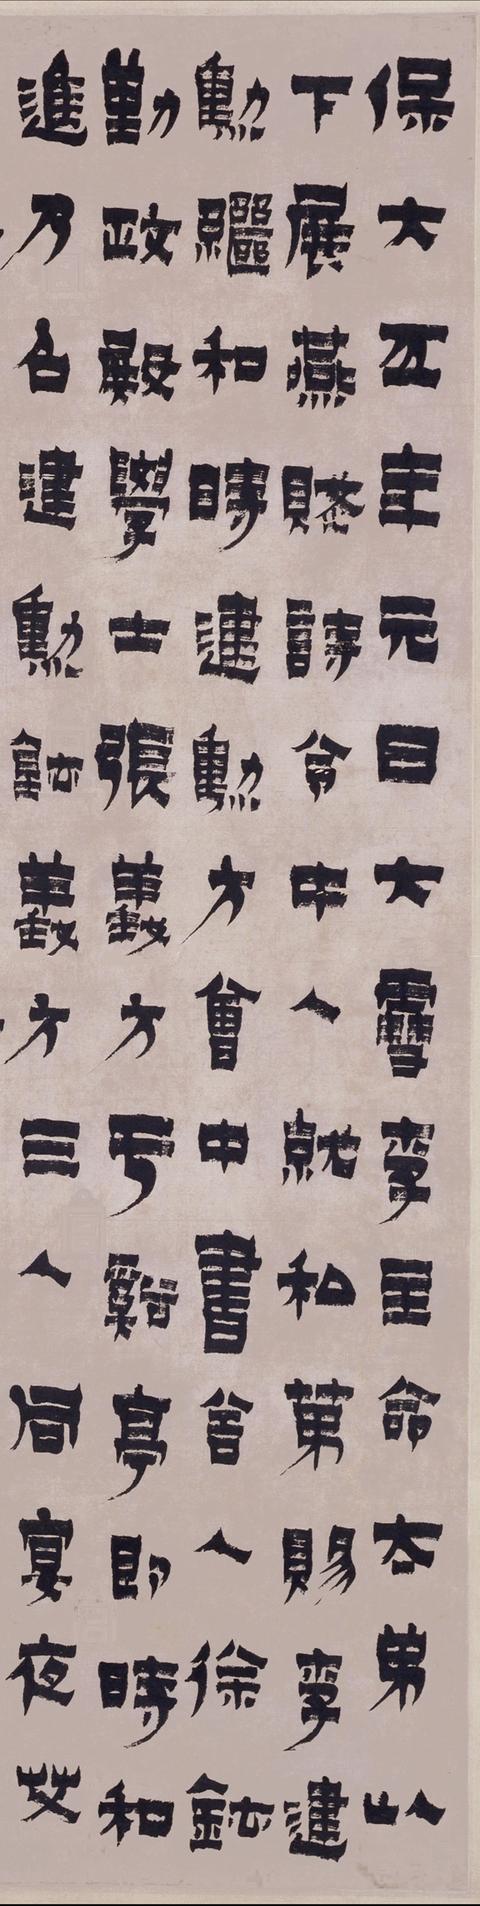 保大五年元日大雪李主命太弟以
下展燕賦詩令中人就和第賜李建
勳繼和時建勳方會中書舍人徐鉉
勤政殿學士張義方于谿亭即時和
進乃召建勳鉉義方三人同宴夜艾